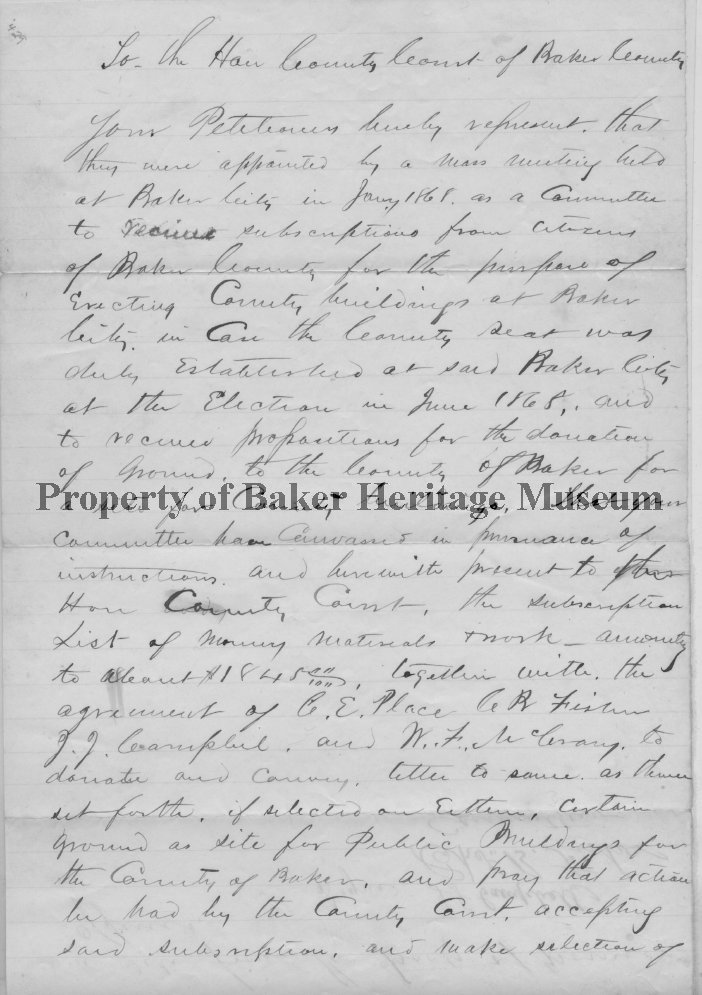 To the Hon County Court of Baker County
Your Petitioners hereby represent. that
they were appointed by a mass meeting held
at Baker City in Jany 1868. as a Committee
to recieve subscriptions from citizens
of Baker County for the purpose of
Erecting County buildings at Baker
City. in Case the County seat was
duly Established at said Baker City
at the Election in June 1868,. and
to recieve propositions for the donation
of Ground. to the County of Baker for
a site for County
Property of Baker Heritage Museum
committee have Canvassed in pursuance of
instructions. and herewith present to
Hon County Court, the subscription
List of Money Materials & work - amounting
to about $1845 00/100, together with. the
agreement of C. E. Place C R Fisher
J. J. Campbell. and W. F. McCrary. to
donate and convey. title to same. as therein
set forth. if selected on Either, certain
ground as site for Public Buildings for
the County of Baker. and pray that action
be had by the County Court. accepting
said subscription. and make selection of